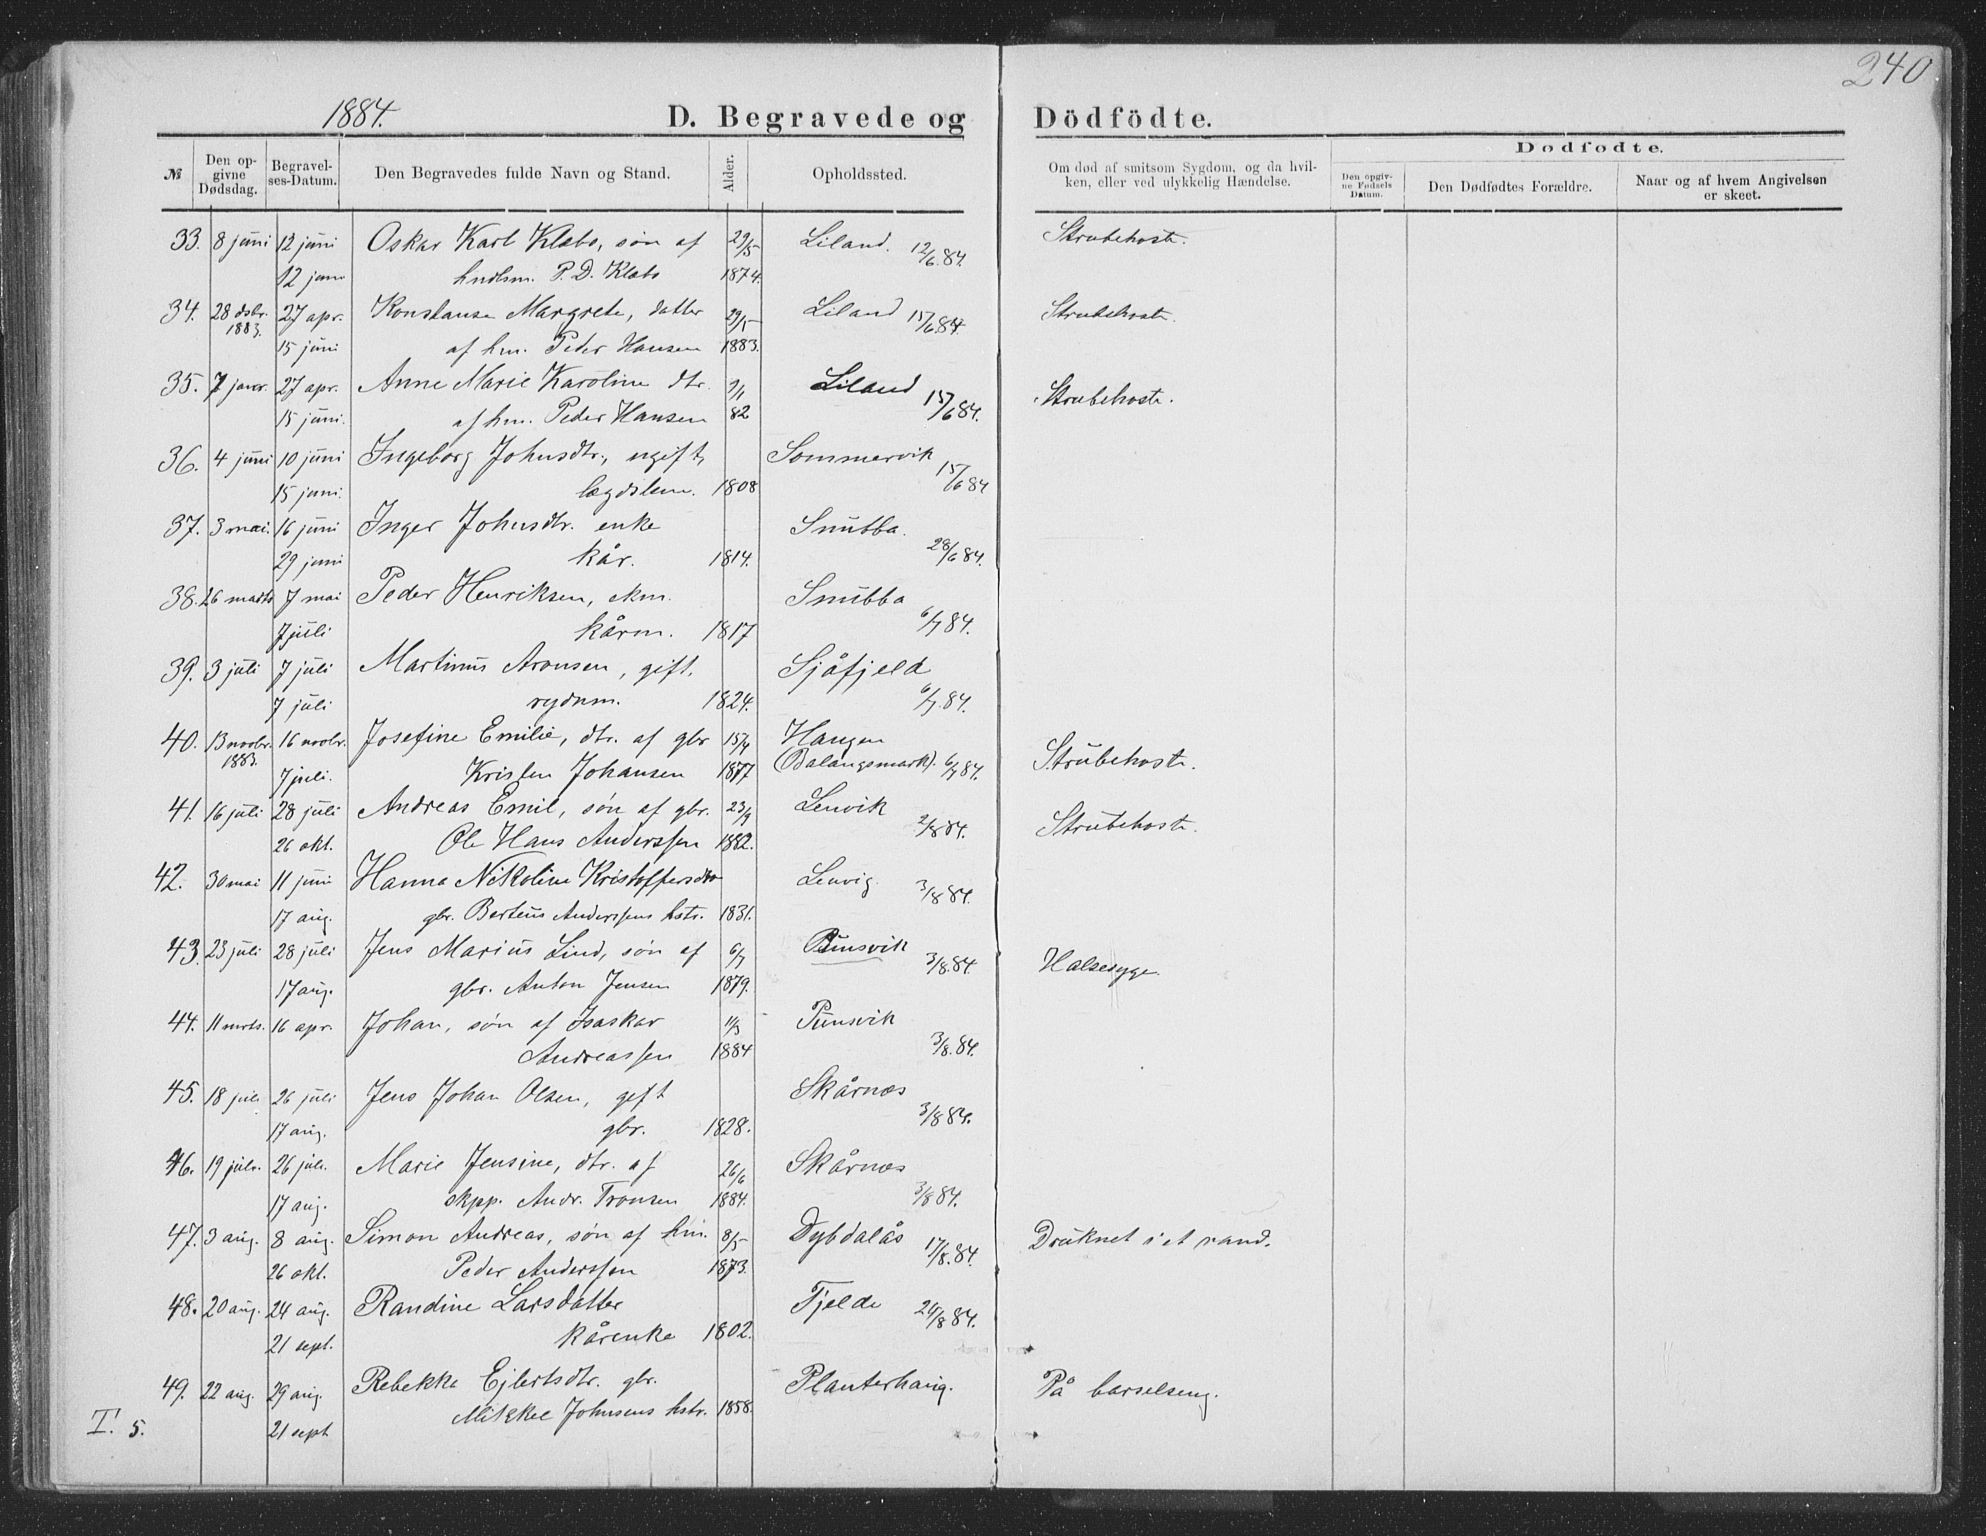 240
1884. D. Begravede og Dödfödte.
№ Den opgivne Dødsdag. Begravelses-Datum. Den Begravedes fulde Navn og Stand. Alder. Opholdssted. Om død af smitsom Sygdom, og da hvilken, eller ved ulykkelig Hændelse. Dødfødte. Den opgivne Fødsels Datum. Den Dødfødtes Forældre. Naar og af hvem Angivelsen er skeet.
33. 8 juni 12 juni Oskar Karl Klæbo, søn af 29/5 Liland. 12/6.84. Strubehoste.
12 juni hndlsm. P. D. Klæbo 1874.
34. 28 dsbr. 1883. 27 apr. Konstanse Margrete, datter 29/5 Liland 15/6.84. Strubehoste.
15 juni af hm. Peder Hansen 1883.
35. 7 janr. 27 apr. Anne Marie Karoline dtr. 9/1 Liland 15/6 84. Strubehoste.
15 juni. af hm. Peder Hansen 82
36. 4 juni 10 juni Ingeborg Johnsdtr., ugift, Sommervik 15/6 84
15 juni. lægdslem. 1808
37. 3 mai. 16 juni Inger Johnsdtr. enke Snubba. 28/6 84.
29 juni kår. 1814.
38. 26 marts 7 mai Peder Henriksen, ekm. Snubba 6/7 84.
7 juli kårm. 1817
39. 3 juli 7 juli Martinus Aronsen, gift, Sjåfjeld 6/7.84.
7 juli rydnm. 1824.
40. 13 novbr. 1883. 16 novbr. Josefine Emilie, dtr. af gbr 15/4 Haugen
7 juli. Kristen Johansen 1877 (Balangsmark). 6/7 84. Strubehoste.
41. 16 juli 28 juli Andreas Emil, søn af gbr. 23/9 Lenvik 2/8 84. Strubehoste.
26 okt. Ole Hans Anderssen 1882.
42. 30 mai 11 juni Hanna Nikoline Kristoffersdtr Lenvig. 3/8 84.
17 aug. gbr. Berteus Anderssens hstr. 1831.
43. 23 juli 28 juli Jens Marius Lind, søn af 6/7 Punsvik 3/8.84 Halsesyge.
17 aug. gbr. Anton Jensen 1879.
44. 11 mrts. 16 apr. Johan, søn af Isaskar 11/3 Punsvik 3/8.84.
Andreassen 1884
45. 18 juli 26 juli Jens Johan Olsen, gift Skårnæs 3/8 84.
17 aug. gbr. 1828.
46. 19 juli. 26 juli. Marie Jensine, dtr. af 26/6 Skårnæs 3/8 84.
17 aug. skpp. Andr. Tronsen 1884.
47. 3 aug. 8 aug. Simon Andreas, søn af hm. 8/5 Dybdalås 17/8.84. Druknet i et vand.
26 okt. Peder Anderssen 1873.
48. 20 aug. 24 aug. Randine Larsdatter Fjelde 24/8 84.
21 sept. kårenke 1802.
49. 22 aug. 29 aug. Rebekka Ejlertsdtr. gbr. Planterhaug. På barselseng.
21 sept Mikkel Johnsens hstr. 1858.
I. 5.